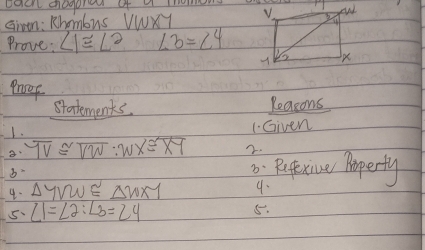 Each diagonal of a rhombus
Given: Rhombus VWXY
Prove: ∠1 ≅ ∠2 ∠3 = ∠4
V W
Y 2 X
Proof
Statements Reasons
1. 1. Given
2. YV ≅ VW ; WX ≅ XY 2.
3. 3. Reflexive Property
4. ΔYVW ≅ ΔWXY 4.
5. ∠1 = ∠2 ; ∠3 = ∠4 5.